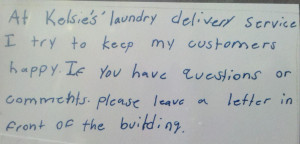 At Kelsie's' laundry delivery service
I try to keep my customers
happy. If you have questions or
comments. please leave a letter in
front of the building.